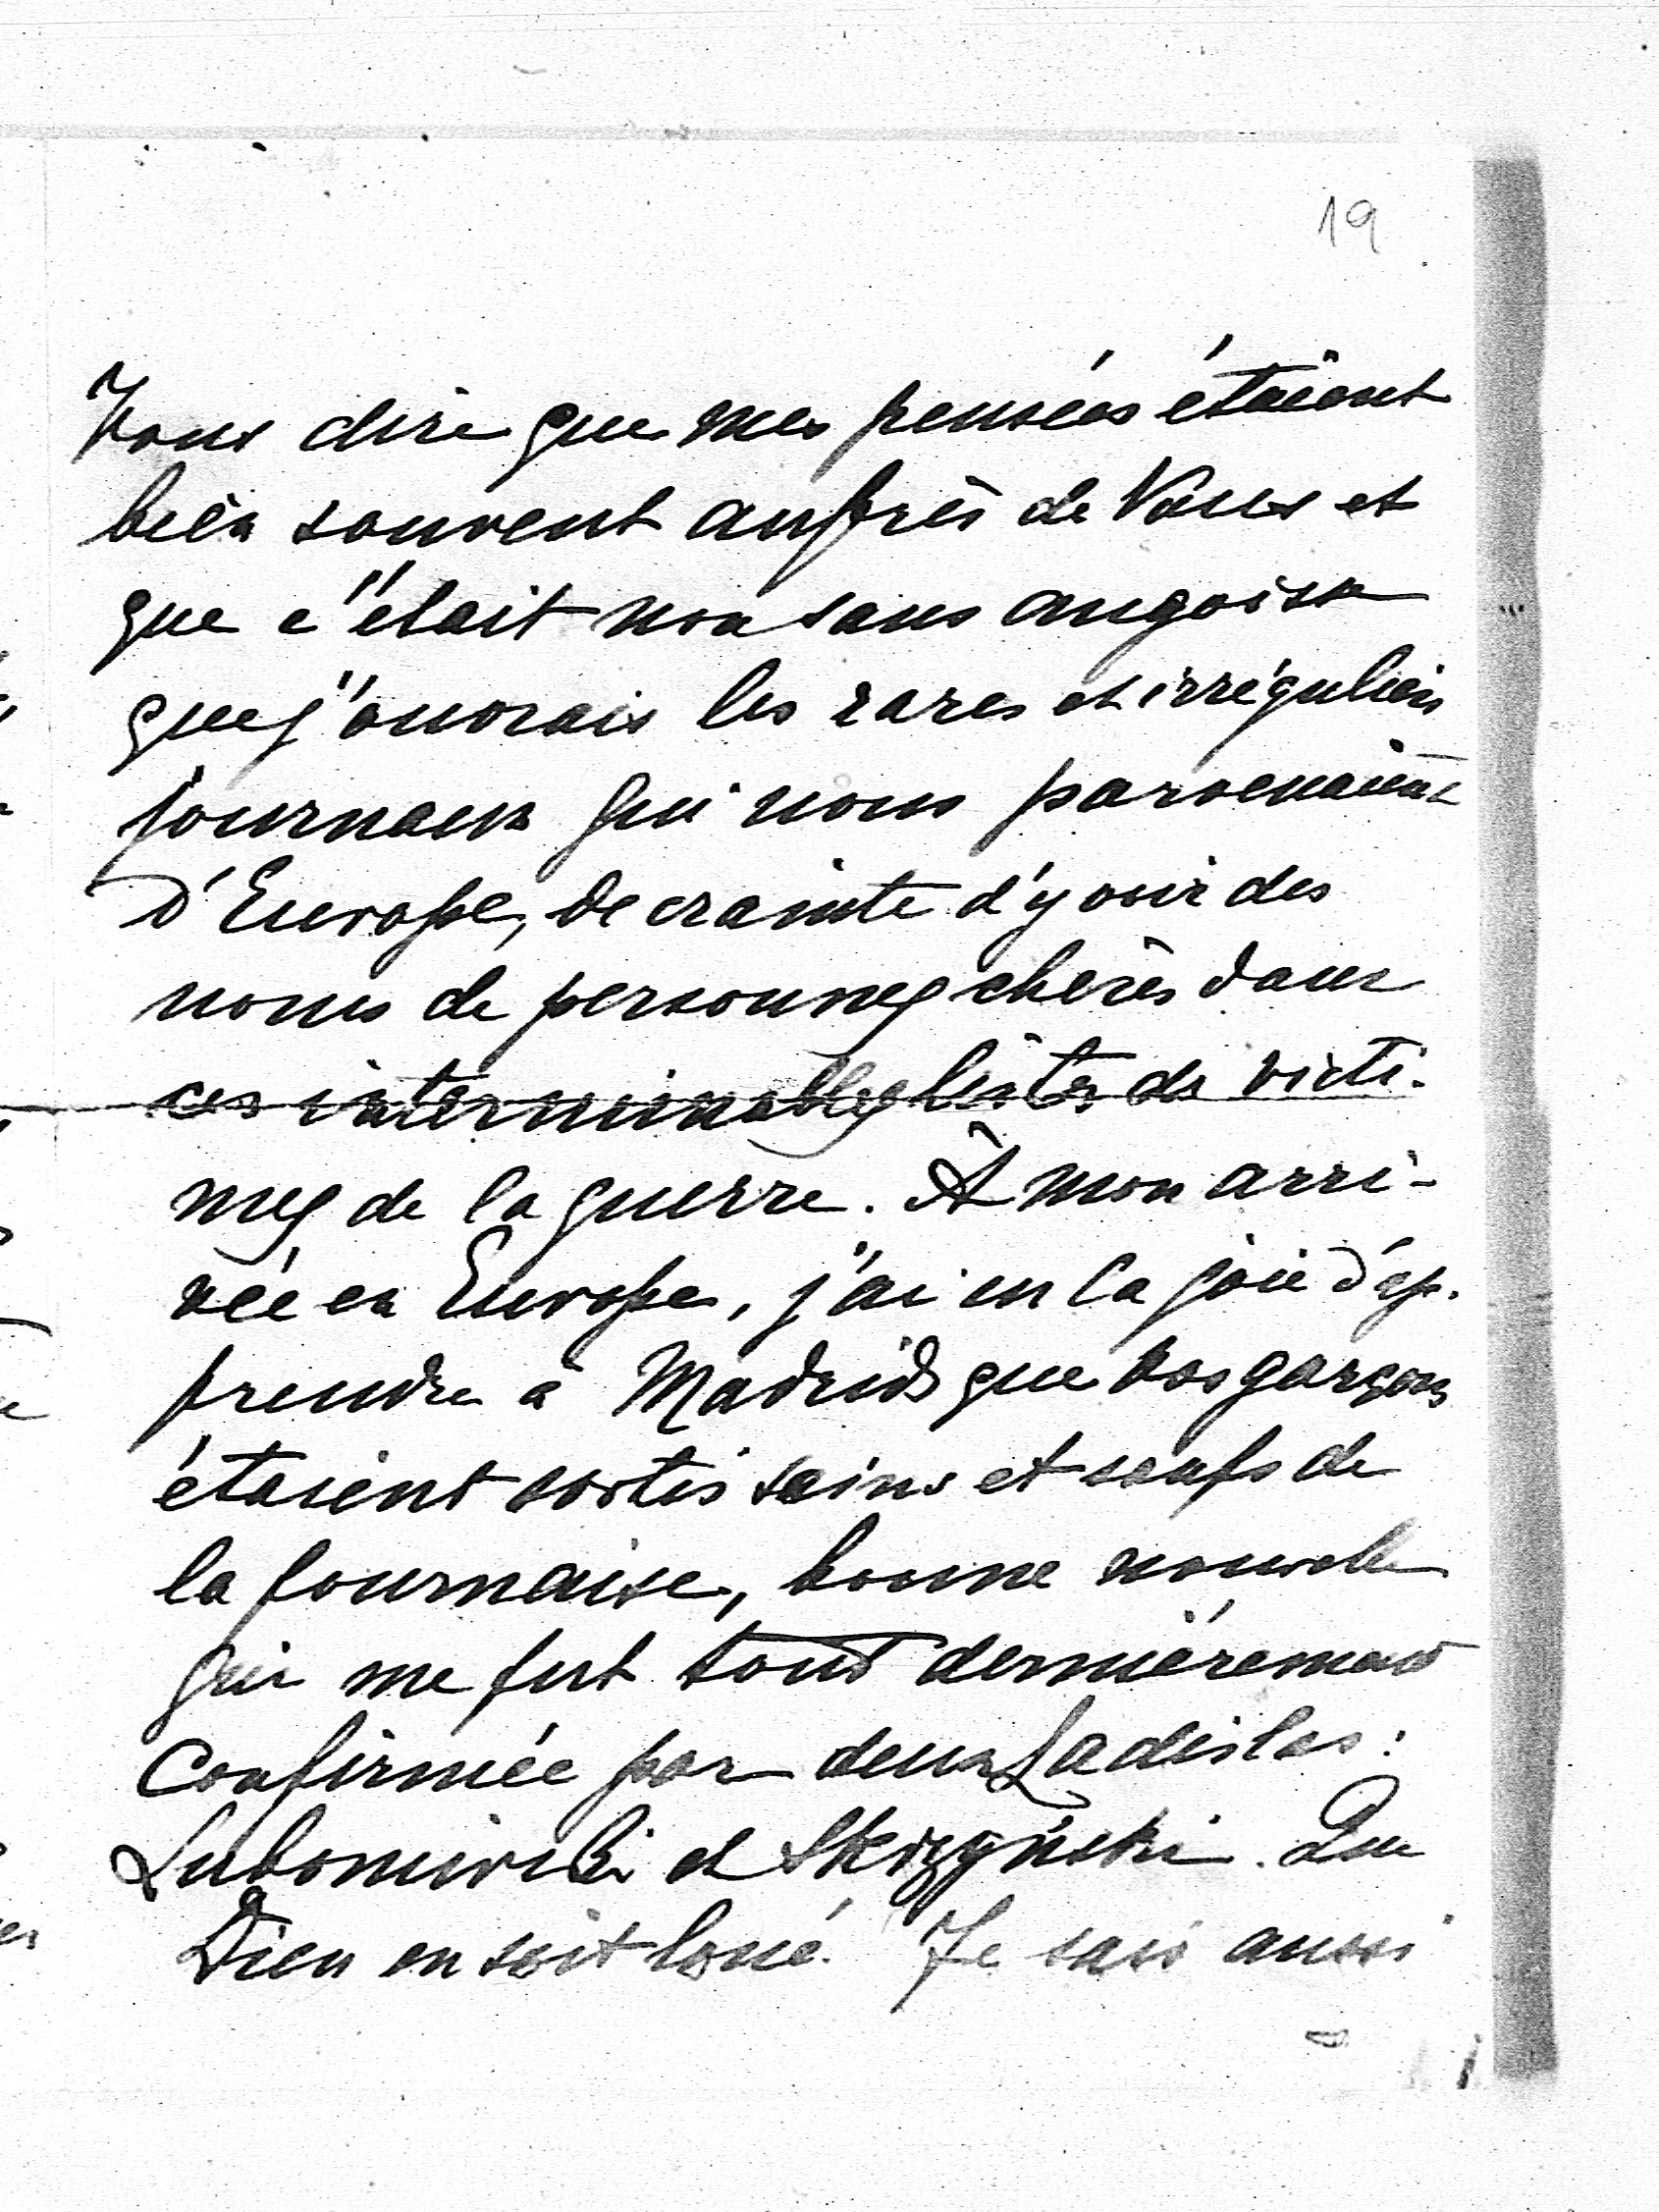 19
Vous dire que mes pensées étaient
bien souvent auprès de Vous et
que c'était non sans angoisse
que j'ouvrais les rares et irréguliers
journaux qui nous parvenaient
d'Europe, de crainte d'y voir des
noms de personnes chères dans
ces interminables listes de victi-
mes de la guerre. À mon arri-
vée en Europe, j'ai eu la joie d'ap-
prendre à Madrid que vos garçons
étaient sortis sains et saufs de
la fournaise, bonne nouvelle
qui me fut tout dernièrement
confirmée par deux Ladislas:
Lubomirski et Skrzyński. Que
Dieu en soit loué! Je sais aussi